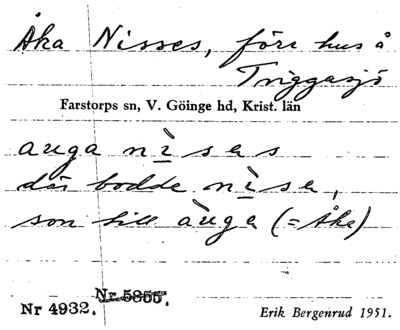 Åka Nisses, förr hus å
Triggasjö
Farstorps sn, V. Göinge hd, Krist. län
auga nìses
där bodde nìse,
son till àuga (= Åke)
Nr 5855.
Nr 4932.
Erik Bergenrud 1951.